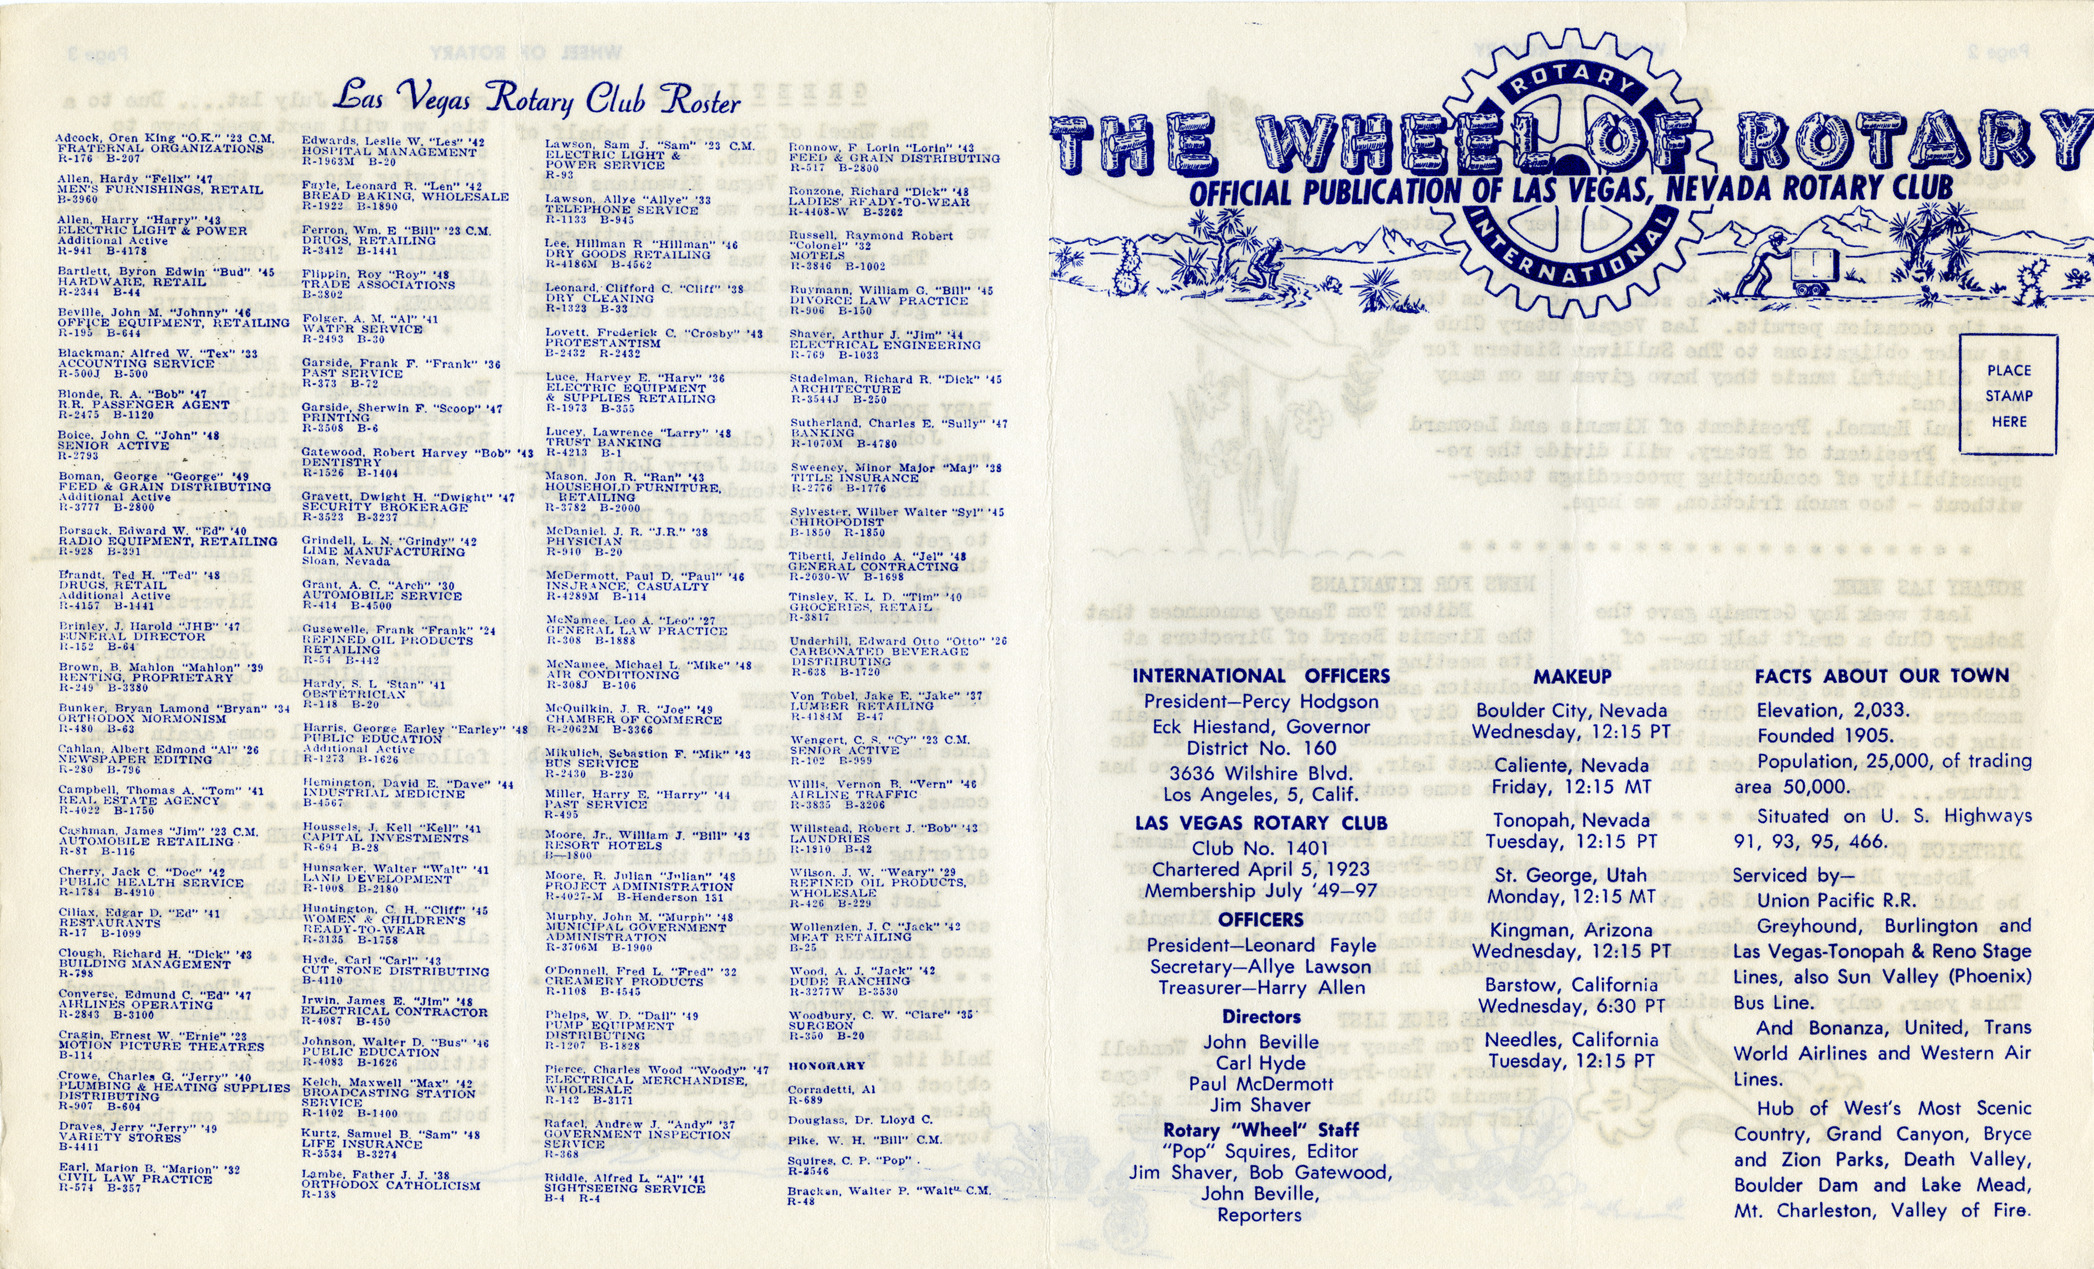 Las Vegas Rotary Club Roster
Adcock, Oren King "O.K." '23 C.M.
FRATERNAL ORGANIZATIONS
R-176 B-207
Allen, Hardy "Felix" '47
MEN'S FURNISHINGS, RETAIL
B-3960
Allen, Harry "Harry" '43
ELECTRIC LIGHT & POWER
Additional Active
R-941 B-4178
Bartlett, Byron Edwin "Bud" '45
HARDWARE, RETAIL
R-2344 B-44
Beville, John M. "Johnny" '46
OFFICE EQUIPMENT, RETAILING
R-195 B-644
Blackman, Alfred W. "Tex" '33
ACCOUNTING SERVICE
R-500J B-500
Blonde, R. A. "Bob" '47
R.R. PASSENGER AGENT
R-2475 B-1120
Boice, John C. "John" '48
SENIOR ACTIVE
R-2793
Boman, George "George" '49
FEED & GRAIN DISTRIBUTING
Additional Active
R-3777 B-2800
Borsack, Edward W. "Ed" '40
RADIO EQUIPMENT, RETAILING
R-928 B-391
Brandt, Ted H. "Ted" '48
DRUGS, RETAIL
Additional Active
R-4157 B-1441
Brinley, J. Harold "JHB" '47
FUNERAL DIRECTOR
R-152 B-64
Brown, B. Mahlon "Mahlon" '39
RENTING, PROPRIETARY
R-249 B-3380
Bunker, Bryan Lamond "Bryan" '34
ORTHODOX MORMONISM
R-480 B-63
Cahlan, Albert Edmond "Al" '26
NEWSPAPER EDITING
R-280 B-796
Campbell, Thomas A. "Tom" '41
REAL ESTATE AGENCY
R-4022 B-1750
Cashman, James "Jim" '23 C.M.
AUTOMOBILE RETAILING
R-81 B-116
Cherry, Jack C. "Doc" '42
PUBLIC HEALTH SERVICE
R-1784 B-4910
Ciliax, Edgar D. "Ed" '41
RESTAURANTS
R-17 B-1099
Clough, Richard H. "Dick" '43
BUILDING MANAGEMENT
R-798
Converse, Edmund C. "Ed" '47
AIRLINES OPERATING
R-2843 B-3100
Cragin, Ernest W. "Ernie" '23
MOTION PICTURE THEATRES
B-114
Crowe, Charles G. "Jerry" '40
PLUMBING & HEATING SUPPLIES
DISTRIBUTING
R-907 B-604
Draves, Jerry "Jerry" '49
VARIETY STORES
B-4411
Earl, Marion B. "Marion" '32
CIVIL LAW PRACTICE
R-574 B-357
Edwards, Leslie W. "Les" '42
HOSPITAL MANAGEMENT
R-1963M B-20
Fayle, Leonard R. "Len" '42
BREAD BAKING, WHOLESALE
R-1922 B-1890
Ferron, Wm. E "Bill" '23 C.M.
DRUGS, RETAILING
R-3412 B-1441
Flippin, Roy "Roy" '48
TRADE ASSOCIATIONS
B-3802
Folger, A. M. "Al" '41
WATER SERVICE
R-2493 B-30
Garside, Frank F. "Frank" '36
PAST SERVICE
R-373 B-72
Garside, Sherwin F. "Scoop" '47
PRINTING
R-3508 B-6
Gatewood, Robert Harvey "Bob" '43
DENTISTRY
R-1526 B-1404
Gravett, Dwight H. "Dwight" '47
SECURITY BROKERAGE
R-3523 B-3237
Grindell, L. N. "Grindy" '42
LIME MANUFACTURING
Sloan, Nevada
Grant, A. C. "Arch" '30
AUTOMOBILE SERVICE
R-414 B-4500
Gusewelle, Frank "Frank" '24
REFINED OIL PRODUCTS
RETAILING
R-54 B-442
Hardy, S. L "Stan" '41
OBSTETRICIAN
R-148 B-20
Harris, George Earley "Earley" '48
PUBLIC EDUCATION
Additional Active
R-1273 B-1626
Hemington, David E. "Dave" '44
INDUSTRIAL MEDICINE
B-4567
Houssels, J. Kell "Kell" '41
CAPITAL INVESTMENTS
R-694 B-28
Hunsaker, Walter "Walt" '41
LAND DEVELOPMENT
R-1008 B-2180
Huntington, C. H. "Cliff" '45
WOMEN & CHILDREN'S
READY-TO-WEAR
R-3135 B-1758
Hyde, Carl "Carl" '43
CUT STONE DISTRIBUTING
B-4110
Irwin, James E. "Jim" '48
ELECTRICAL CONTRACTOR
R-4087 B-450
Johnson, Walter D. "Bus" '46
PUBLIC EDUCATION
R-4083 B-1626
Kelch, Maxwell "Max" '42
BROADCASTING STATION
SERVICE
R-1102 B-1400
Kurtz, Samuel B. "Sam" '48
LIFE INSURANCE
R-3534 B-3274
Lambe, Father J. J. '38
ORTHODOX CATHOLICISM
R-138
Lawson, Sam J. "Sam" '23 C.M.
ELECTRIC LIGHT &
POWER SERVICE
R-93
Lawson, Allye "Allye" '33
TELEPHONE SERVICE
R-1133 B-945
Lee, Hillman R "Hillman" '46
DRY GOODS RETAILING
R-4186M B-4562
Leonard, Clifford C. "Cliff" '38
DRY CLEANING
R-1323 B-33
Lovett, Frederick C. "Crosby" '43
PROTESTANTISM
B-2432 R-2432
Luce, Harvey E. "Harv" '36
ELECTRIC EQUIPMENT
& SUPPLIES RETAILING
R-1973 B-355
Lucey, Lawrence "Larry" '48
TRUST BANKING
R-4213 B-1
Mason, Jon R. "Ran" '43
HOUSEHOLD FURNITURE,
RETAILING
R-3782 B-2000
McDaniel, J. R. "J.R." '38
PHYSICIAN
R-940 B-20
McDermott, Paul D. "Paul" '46
INSURANCE, CASUALTY
R-4289M B-114
McNamee, Leo A. "Leo" '27
GENERAL LAW PRACTICE
R-308 B-1888
McNamee, Michael L. "Mike" '48
AIR CONDITIONING
R-308J B-106
McQuilkin, J. R. "Joe" '49
CHAMBER OF COMMERCE
R-2062M B-3366
Mikulich, Sebastion F. "Mik" '43
BUS SERVICE
R-2430 B-230
Miller, Harry E. "Harry" '44
PAST SERVICE
R-495
Moore, Jr., William J. "Bill" '43
RESORT HOTELS
B—1800
Moore, R. Julian "Julian" '48
PROJECT ADMINISTRATION
R-4027-M B-Henderson 131
Murphy, John M. "Murph" '48
MUNICIPAL GOVERNMENT
ADMINISTRATION
R-3706M B-1900
O'Donnell, Fred L. "Fred" '32
CREAMERY PRODUCTS
R-1108 B-4545
Phelps, W. D. "Dall" '49
PUMP EQUIPMENT
DISTRIBUTING
R-1207 B-1828
Pierce, Charles Wood "Woody" '47
ELECTRICAL MERCHANDISE,
WHOLESALE
R-142 B-3171
Rafael, Andrew J. "Andy" '37
GOVERNMENT INSPECTION
SERVICE
R-368
Riddle, Alfred L. "Al" '41
SIGHTSEEING SERVICE
B-4 R-4
Ronnow, F Lorin "Lorin" '43
FEED & GRAIN DISTRIBUTING
R-517 B-2800
Ronzone, Richard "Dick" '48
LADIES' READY-TO-WEAR
R-4408-W B-3262
Russell, Raymond Robert
"Colonel" '32
MOTELS
R-3846 B-1002
Ruymann, William G. "Bill" '45
DIVORCE LAW PRACTICE
R-906 B-150
Shaver, Arthur J. "Jim" '44
ELECTRICAL ENGINEERING
R-769 B-1033
Stadelman, Richard R. "Dick" '45
ARCHITECTURE
R-3544J B-250
Sutherland, Charles E. "Sully" '47
BANKING
R-1070M B-4780
Sweeney, Minor Major "Maj" '38
TITLE INSURANCE
R-2776 B-1776
Sylvester, Wilber Walter "Syl" '45
CHIROPODIST
B-1850 R-1850
Tiberti, Jelindo A. "Jel" '48
GENERAL CONTRACTING
R-2030-W B-1698
Tinsley, K. L. D. "Tim" '40
GROCERIES, RETAIL
R-3817
Underhill, Edward Otto "Otto" '26
CARBONATED BEVERAGE
DISTRIBUTING
R-638 B-1720
Von Tobel, Jake E. "Jake" '37
LUMBER RETAILING
R-4184M B-47
Wengert, C. S. "Cy" '23 C.M.
SENIOR ACTIVE
R-102 B-999
Willis, Vernon B. "Vern" '46
AIRLINE TRAFFIC
R-3835 B-3206
Willstead, Robert J. "Bob" '43
LAUNDRIES
R-1910 B-42
Wilson, J. W. "Weary" '29
REFINED OIL PRODUCTS,
WHOLESALE
R-426 B-229
Wollenzien, J. C. "Jack" '42
MEAT RETAILING
B-25
Wood, A. J. "Jack" '42
DUDE RANCHING
R-3277W B-3530
Woodbury, C. W. "Clare" '35
SURGEON
R-350 B-20
HONORARY
Corradetti, Al
R-689
Douglass, Dr. Lloyd C.
Pike, W. H. "Bill" C.M.
Squires, C. P. "Pop"
R-2546
Bracken, Walter P. "Walt" C.M.
R-48
ROTARY
THE WHEEL OF ROTARY
OFFICIAL PUBLICATION OF LAS VEGAS, NEVADA ROTARY CLUB
INTERNATIONAL
PLACE
STAMP
HERE
INTERNATIONAL OFFICERS
President—Percy Hodgson
Eck Hiestand, Governor
District No. 160
3636 Wilshire Blvd.
Los Angeles, 5, Calif.
LAS VEGAS ROTARY CLUB
Club No. 1401
Chartered April 5, 1923
Membership July '49—97
OFFICERS
President—Leonard Fayle
Secretary—Allye Lawson
Treasurer—Harry Allen
Directors
John Beville
Carl Hyde
Paul McDermott
Jim Shaver
Rotary "Wheel" Staff
"Pop" Squires, Editor
Jim Shaver, Bob Gatewood,
John Beville,
Reporters
MAKEUP
Boulder City, Nevada
Wednesday, 12:15 PT
Caliente, Nevada
Friday, 12:15 MT
Tonopah, Nevada
Tuesday, 12:15 PT
St. George, Utah
Monday, 12:15 MT
Kingman, Arizona
Wednesday, 12:15 PT
Barstow, California
Wednesday, 6:30 PT
Needles, California
Tuesday, 12:15 PT
FACTS ABOUT OUR TOWN
Elevation, 2,033.
Founded 1905.
Population, 25,000, of trading
area 50,000.
Situated on U. S. Highways
91, 93, 95, 466.
Serviced by—
Union Pacific R.R.
Greyhound, Burlington and
Las Vegas-Tonopah & Reno Stage
Lines, also Sun Valley (Phoenix)
Bus Line.
And Bonanza, United, Trans
World Airlines and Western Air
Lines.
Hub of West's Most Scenic
Country, Grand Canyon, Bryce
and Zion Parks, Death Valley,
Boulder Dam and Lake Mead,
Mt. Charleston, Valley of Fire.